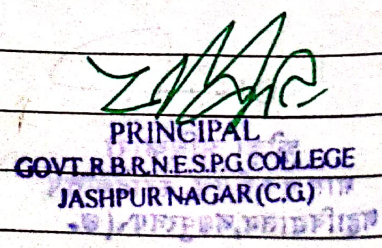 PRINCIPAL
GOVT. R.B.R.N.E.S.P.G COLLEGE
JASHPUR NAGAR (C.G.)